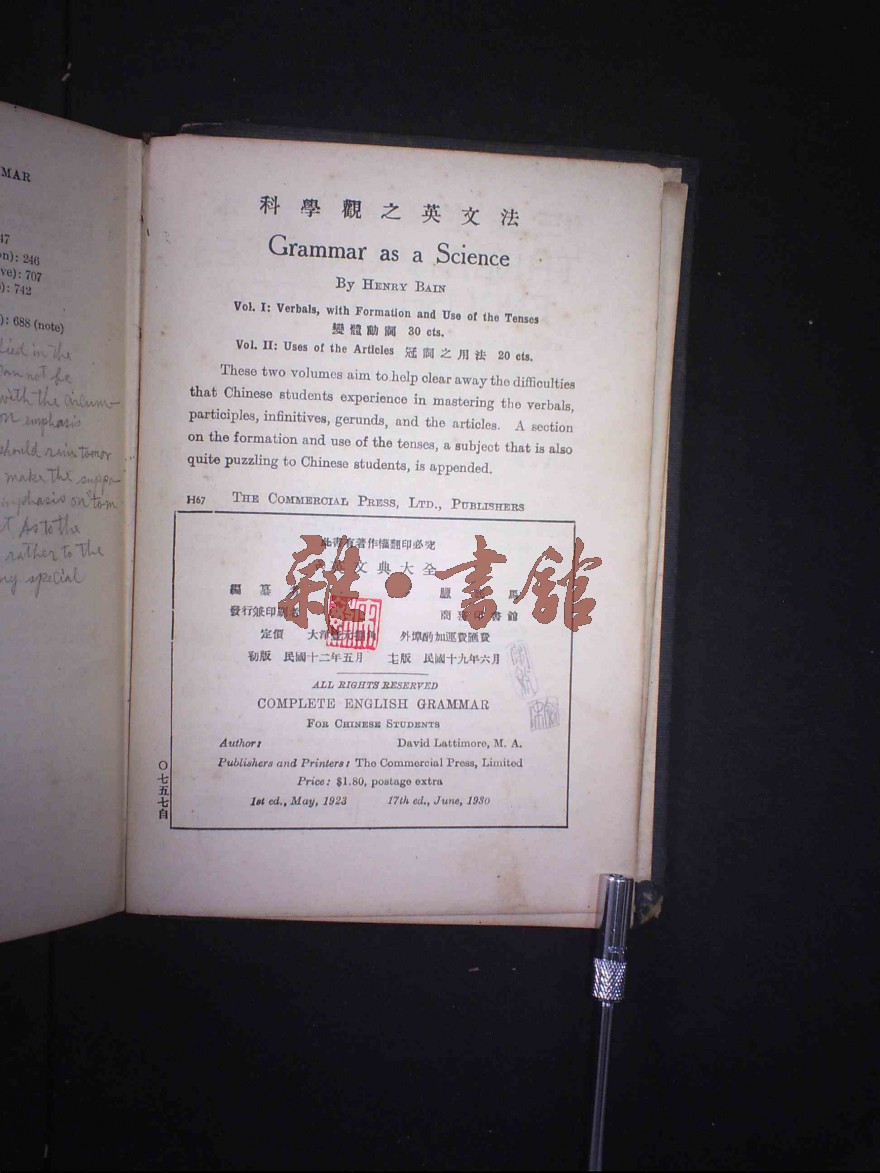 MAR
47
on): 246
ve): 707
): 742
): 688 (note)
in the
not be
with the
on emphasis
should rain tomor
make the suppo
emphasis on tom
As to the
rather to the
special
科學觀之英文法
Grammar as a Science
By Henry Bain
Vol. I: Verbals, with Formation and Use of the Tenses
變體動詞 30 cts.
Vol. II: Uses of the Articles 冠詞之用法 20 cts.
These two volumes aim to help clear away the difficulties
that Chinese students experience in mastering the verbals,
participles, infinitives, gerunds, and the articles. A section
on the formation and use of the tenses, a subject that is also
quite puzzling to Chinese students, is appended.
H67 The Commercial Press, Ltd., Publishers
此書有著作權翻印必究
英文典大全
編纂
發行兼印刷者 商務印書館
定價 大洋 外埠酌加運費匯費
初版 民國十二年五月 七版 民國十九年六月
雜·書館
ALL RIGHTS RESERVED
COMPLETE ENGLISH GRAMMAR
For Chinese Students
Author: David Lattimore, M. A.
Publishers and Printers: The Commercial Press, Limited
Price: $1.80, postage extra
1st ed., May, 1923 17th ed., June, 1930
〇七五七自